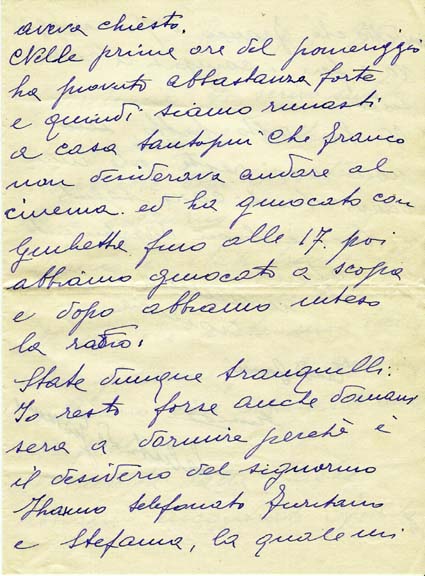 aveva chiesto.
Nelle prime ore del pomeriggio
ha piovuto abbastanza forte
e quindi siamo rimasti
a casa tantopiù che Franco
non desiderava andare al
cinema. ed ha giuocato con
Giulietta fino alle 17. poi
abbiamo giuocato a scopa
e dopo abbiamo inteso
la radio.
State dunque tranquilli.
Io resto forse anche domani
sera a dormire perchè è
il desiderio del signorino
Hanno telefonato
e Stefania, la quale mi